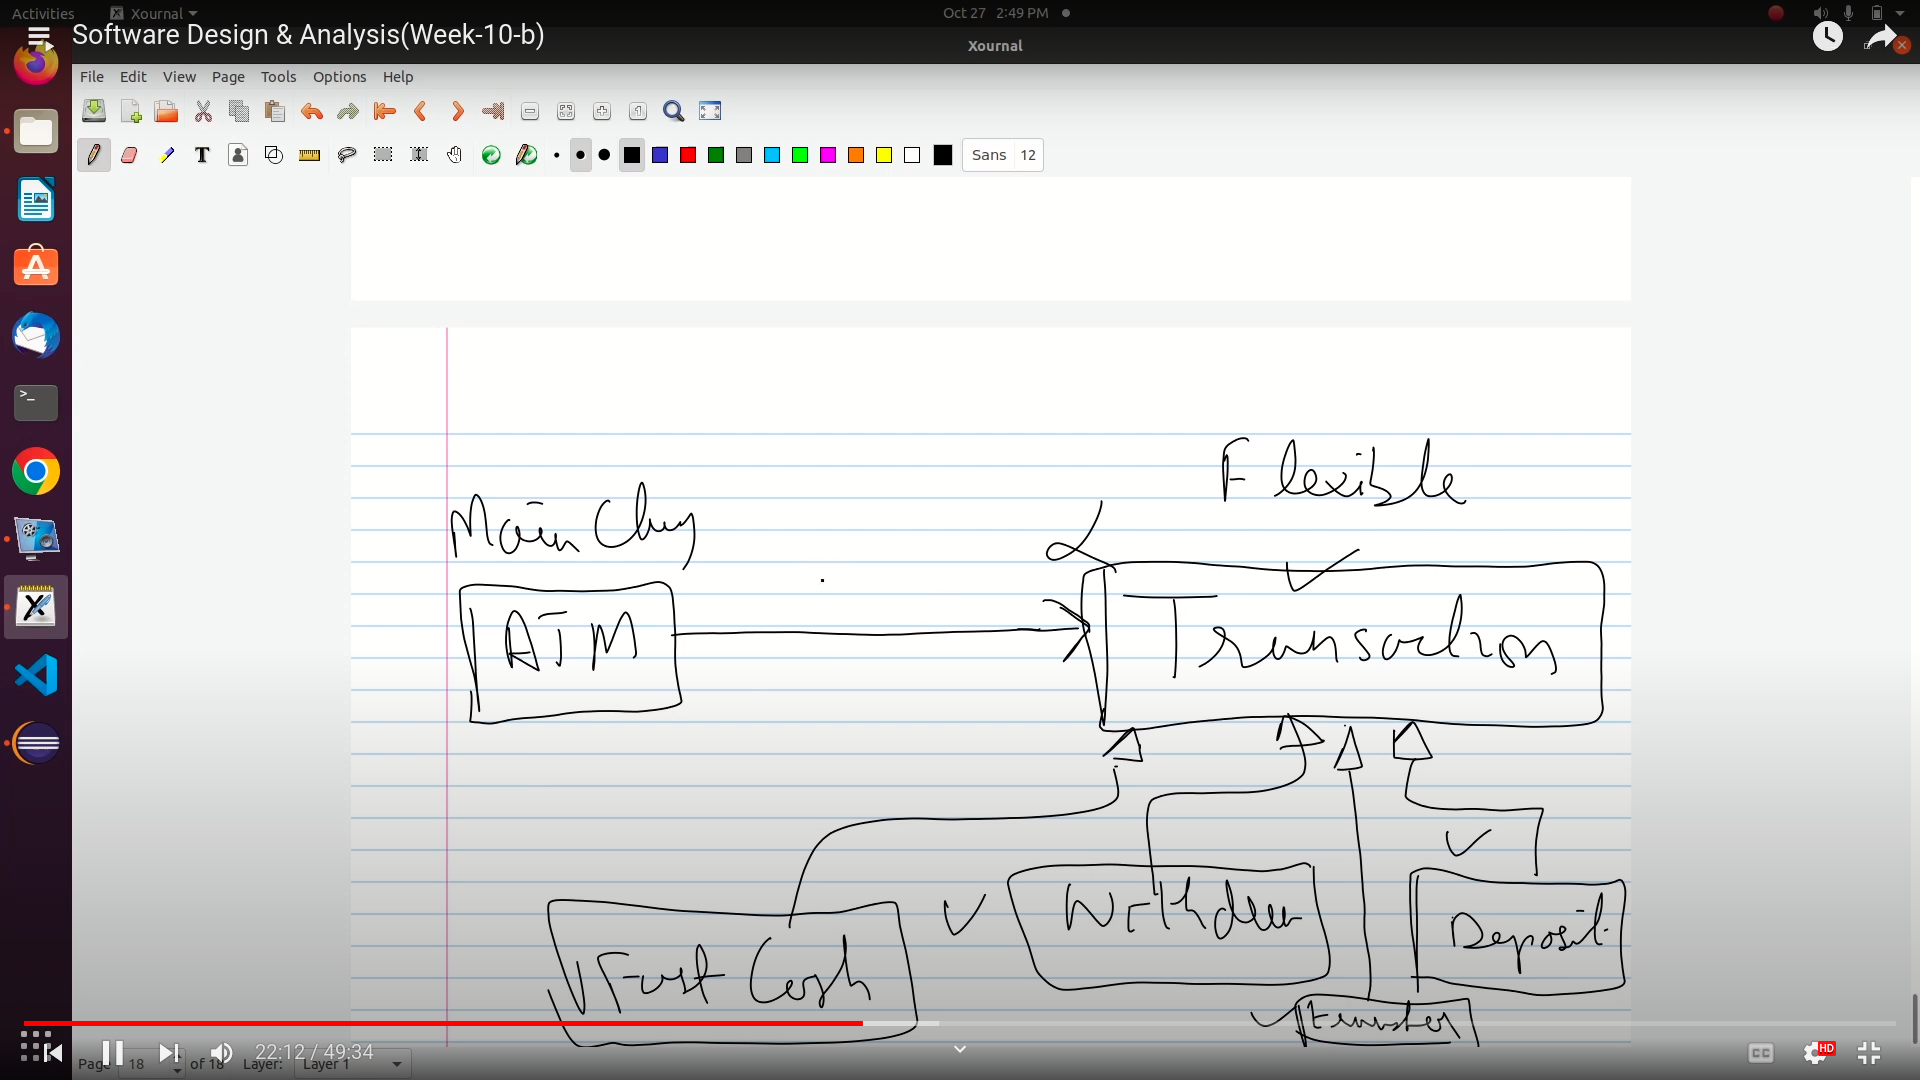 Activities Xournal Oct 27 2:49 PM
Software Design & Analysis(Week-10-b)
Xournal
File Edit View Page Tools Options Help
T Sans 12
Flexible
Main
ATM
Transaction
Withdraw
Deposit
Fast Cash
Transfer
22:12 / 49:34
CC HD
Page 18 of 18 Layer: Layer 1